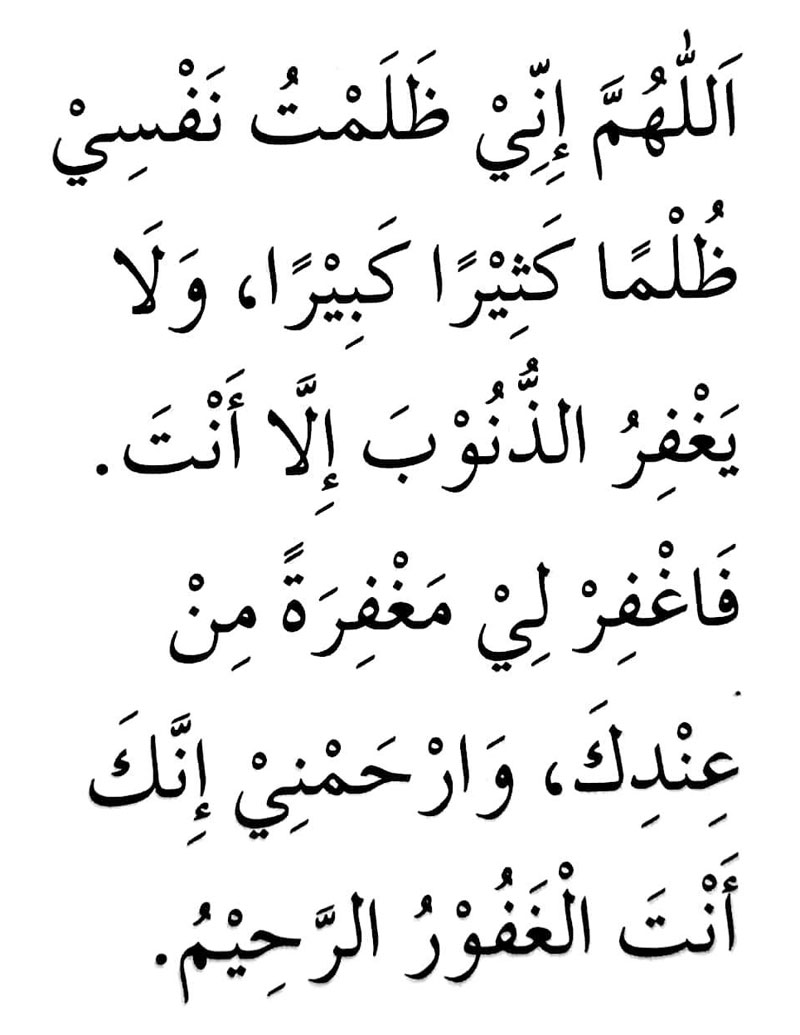 اَللّٰهُمَّ إِنِّيْ ظَلَمْتُ نَفْسِيْ
ظُلْمًا كَثِيْرًا كَبِيْرًا، وَلَا
يَغْفِرُ الذُّنُوْبَ إِلَّا أَنْتَ.
فَاغْفِرْ لِيْ مَغْفِرَةً مِنْ
عِنْدِكَ، وَارْحَمْنِيْ إِنَّكَ
أَنْتَ الْغَفُوْرُ الرَّحِيْمُ.